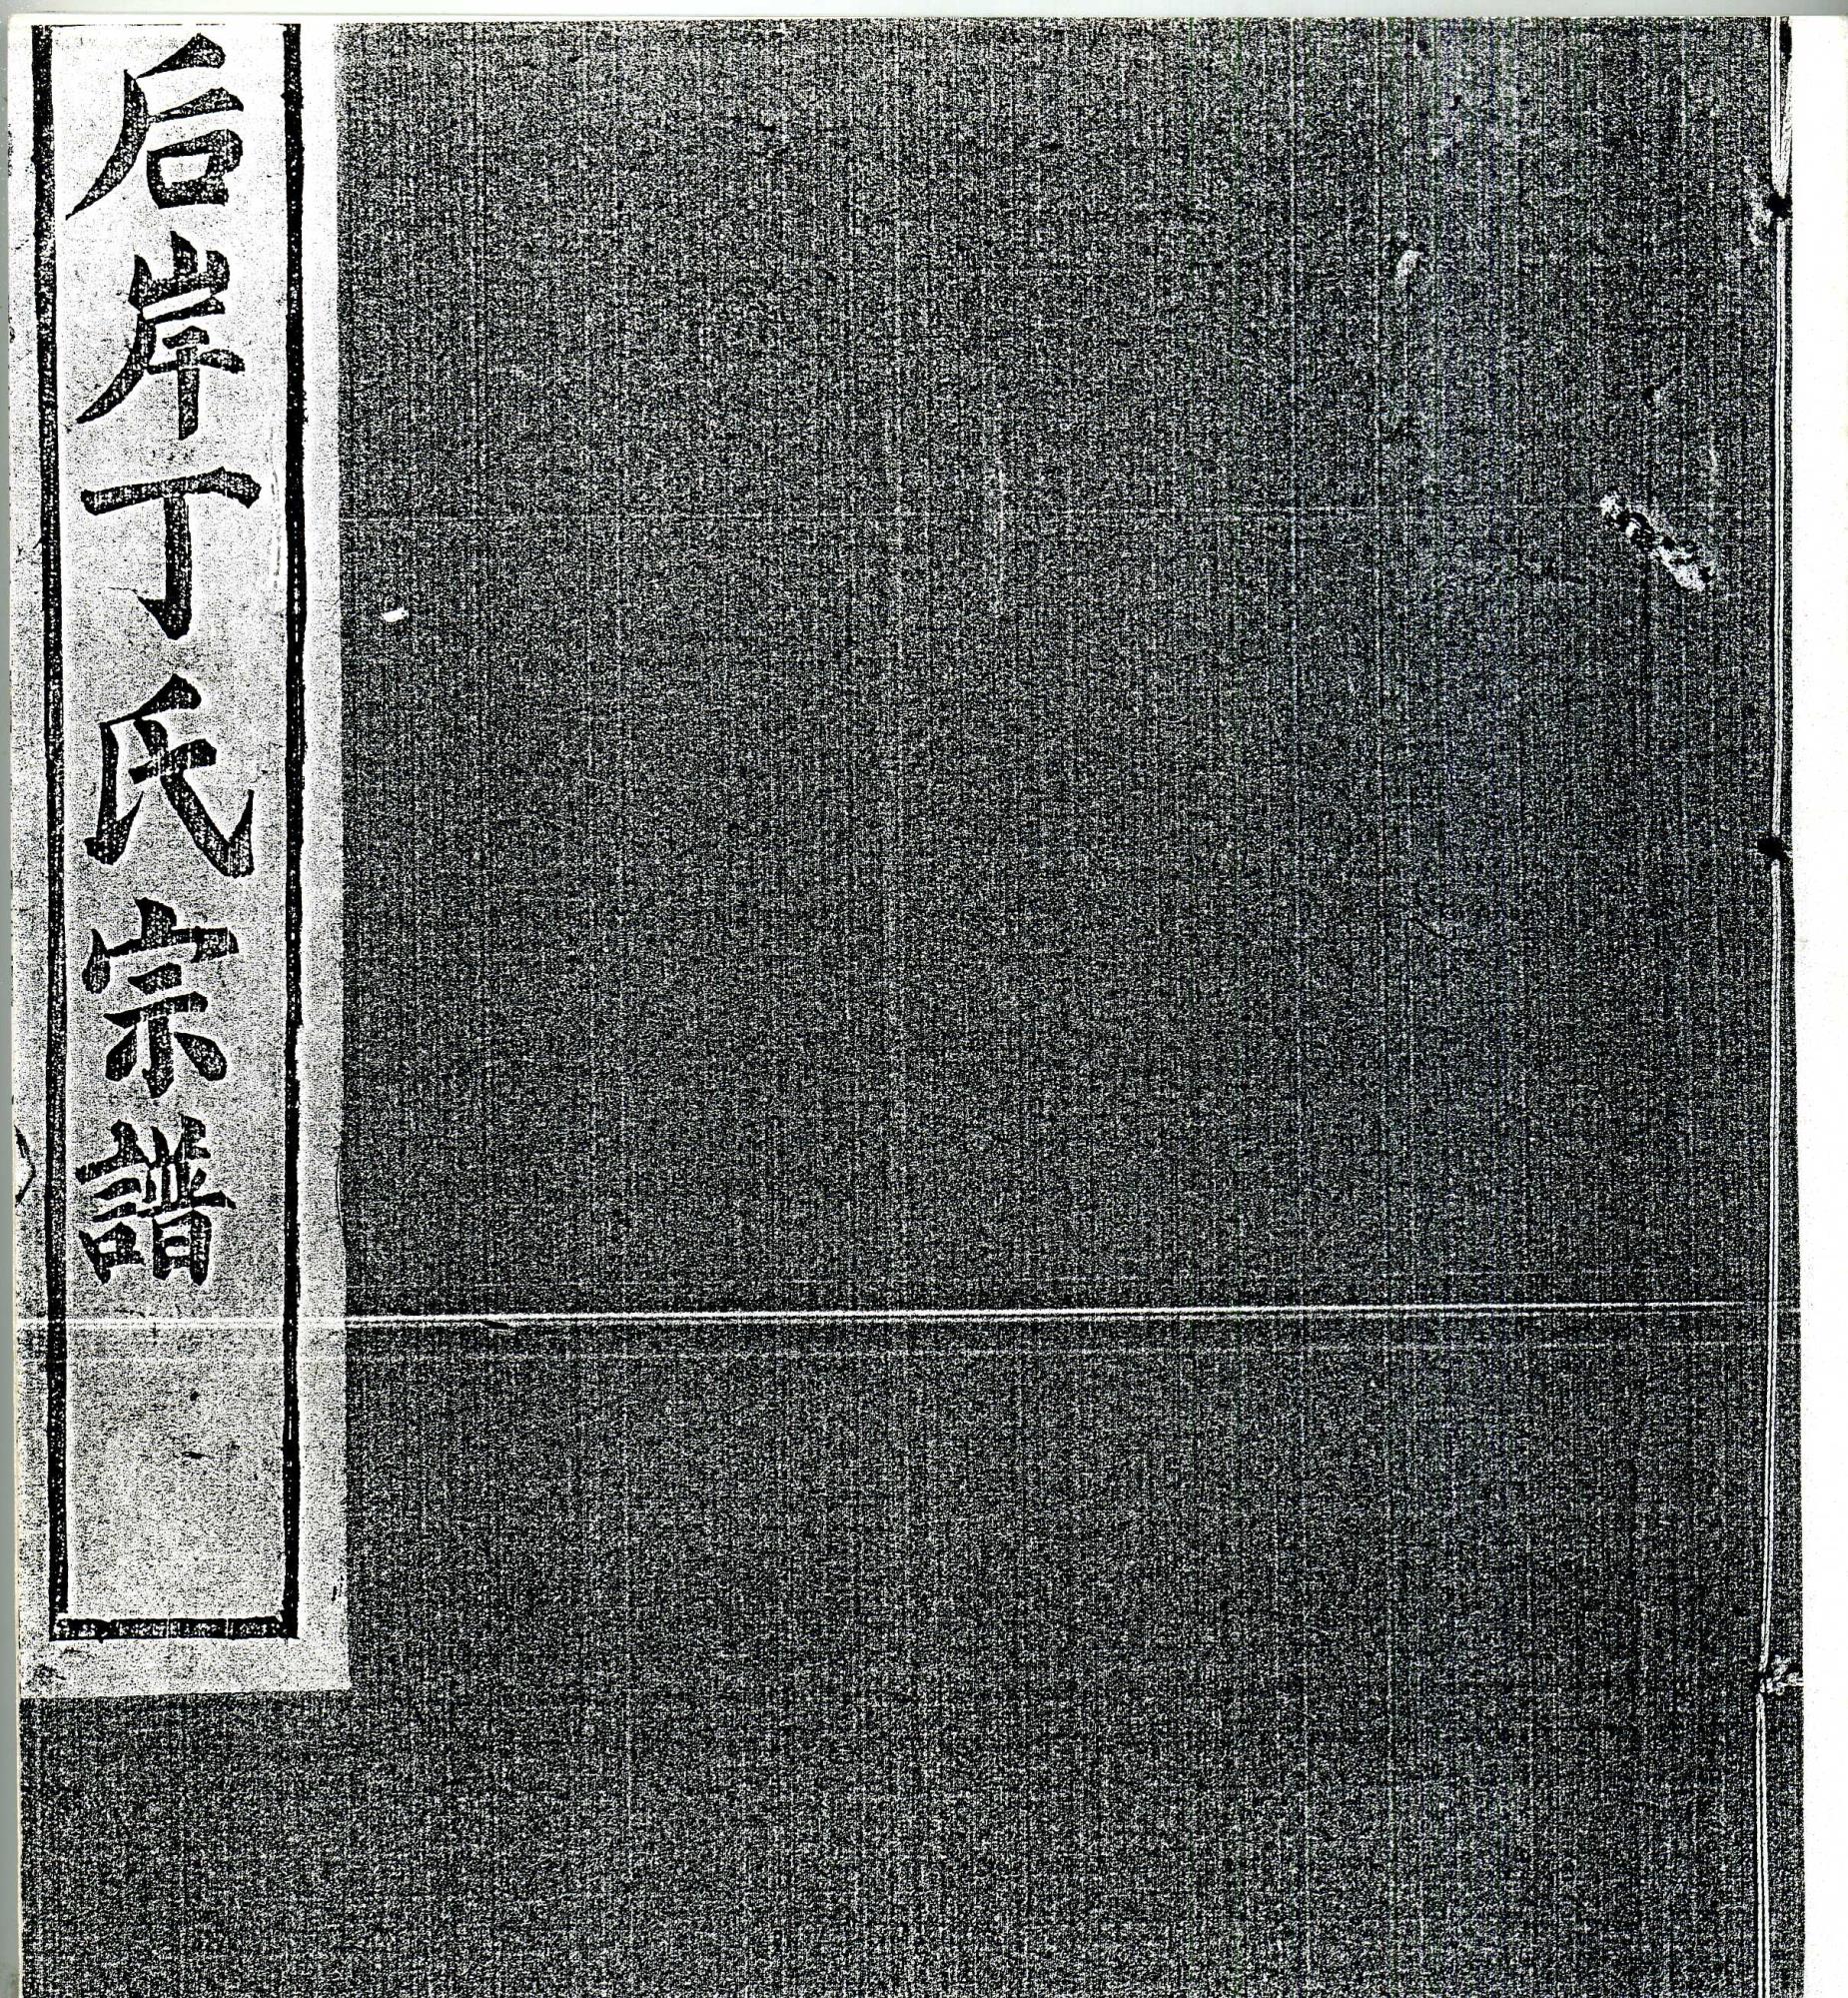 后岸丁氏宗譜